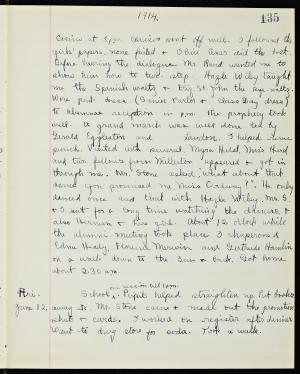 1914. 135
Exercises at 8 p.m. Exercises went off well. I followed the
girls' papers. none failed & Olive Asker did the best.
Before hearing the dialogue Mr. Rand wanted me to
show him how to two step. Hazle Wiley taught
me the Spanish waltz & Eliz. St. John the
Wore pink dress (Senior Parlor & Class Day dress)
to alumnae reception in p.m. The prophecy took
well. A grand march was well done, led by
Gerald Eggleston and Landon. I helped serve
punch. Visited with several, Myra Hulst, Miss Hurd
and two fellows from Millerton appeared & got in
through me. Mr. Stone asked, "What about that
dance you promised me, Miss Ordway?". He only
danced once and that with Hazle Wiley. Mr. S.
& I sat for a long time watching the dancers, &
also Harmon & his girl. About 12 o'clock while
the alumni meeting took place I chaperoned
Edna Heady, Florence Merwin and Gertrude Hamlin
on a walk down to the Inn & back. Got home
about 2:30 a.m.
Fri. School, one session till 1 p.m. Pupils helped straighten up. Put books
June 12. away &c. Mr. Stone came & made out the promotion
sheet & cards. I worked on register after dinner.
Went to drug store for soda. Took a walk.